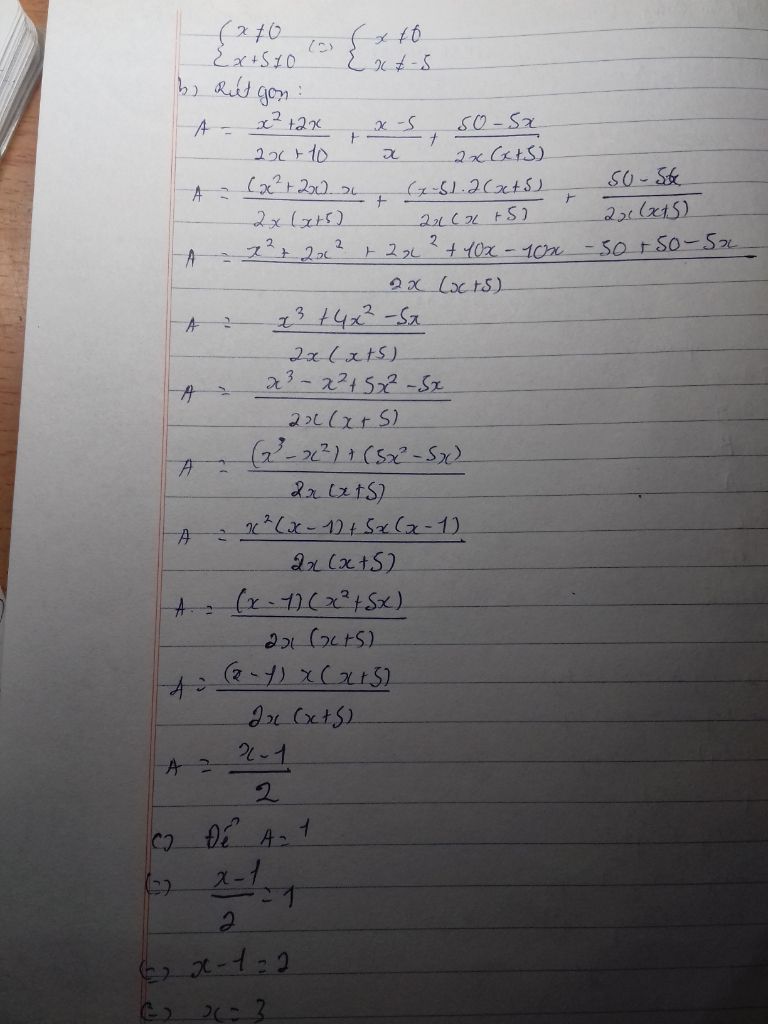 {x ≠ 0 (=) {x ≠ 0
{x+5 ≠ 0 {x ≠ -5
b) Rút gọn:
A = (x² + 2x)/(2x + 10) + (x - 5)/x + (50 - 5x)/(2x(x+5))
A = ((x² + 2x).x)/(2x(x+5)) + ((x-5).2(x+5))/(2x(x+5)) + (50 - 5x)/(2x(x+5))
A = (x² + 2x² + 2x² + 10x - 10x - 50 + 50 - 5x)/(2x(x+5))
A = (x³ + 4x² - 5x)/(2x(x+5))
A = (x³ - x² + 5x² - 5x)/(2x(x+5))
A = ((x³ - x²) + (5x² - 5x))/(2x(x+5))
A = (x²(x-1) + 5x(x-1))/(2x(x+5))
A = ((x-1)(x² + 5x))/(2x(x+5))
A = ((x-1) x(x+5))/(2x(x+5))
A = (x-1)/2
c) Để A = 1
(=) (x-1)/2 = 1
(=) x - 1 = 2
(=) x = 3